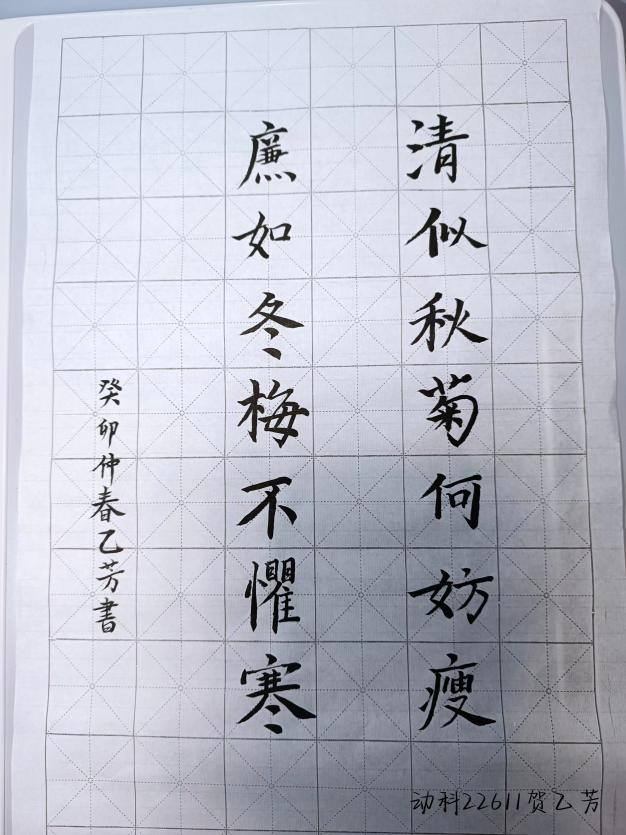 清似秋菊何妨瘦
廉如冬梅不懼寒
癸卯仲春乙芳書
动科22611贺乙芳